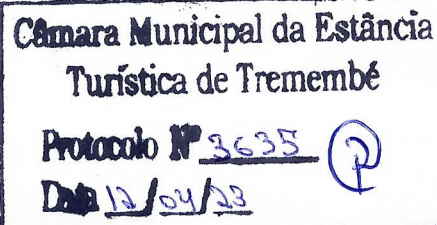 Câmara Municipal da Estância
Turística de Tremembé
Protocolo Nº 3635 P
Data 12/04/23